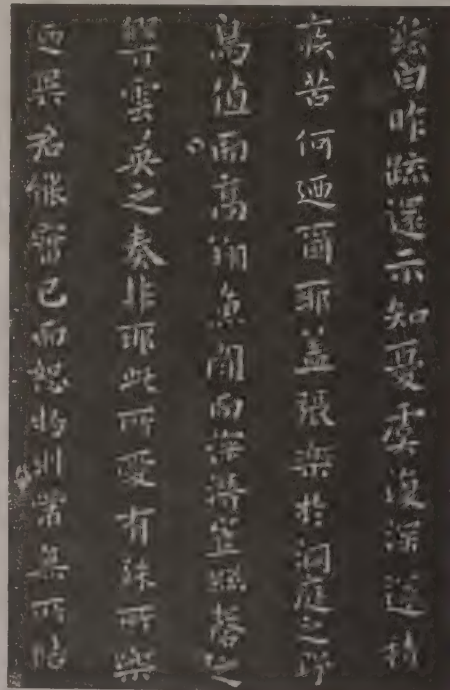 繇白昨疏還示知憂虞復深遂積
疾苦何迺爾耶蓋張樂於洞庭之野
鳥值而高翔魚聞而深潛豈絲磬之
響雲英之奏非耶此所愛有殊所樂
迺異君能審己而恕物則常無所結